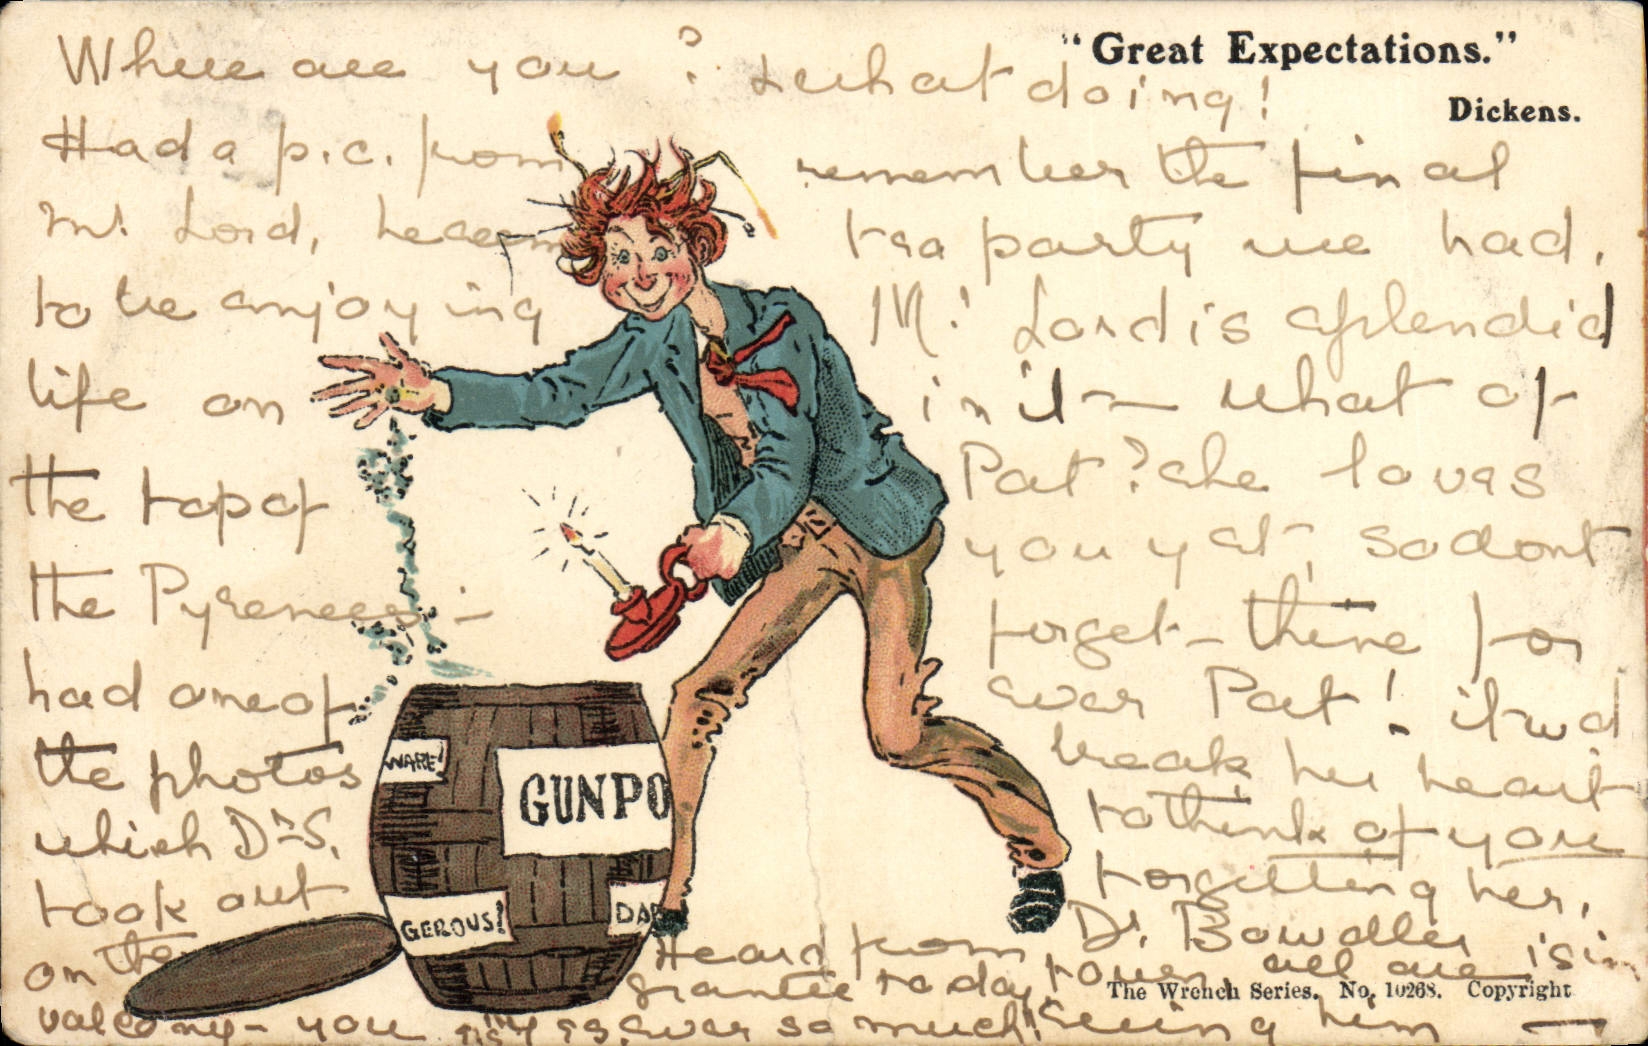 "Great Expectations."
Dickens.
Where are you? & what doing!
Had a p.c. from
Mr Lord, he seems
to be enjoying
life on
the top of
the Pyrenees –
had one of
the photos
which Dr S.
took out
on the
balcony – you
remember the final
tea party we had.
Mr Lord is splendid
in it – what of
Pat? she loves
you yet, so dont
forget – thine for
ever Pat! it wd
break her heart
to think of you
forgetting her.
Heard from
Grantee today
ever so much!
Dr. Bowdler is in
town, all are
seeing him
WARE!
GUNPO
GEROUS!
DA
The Wrench Series. No. 10268. Copyright